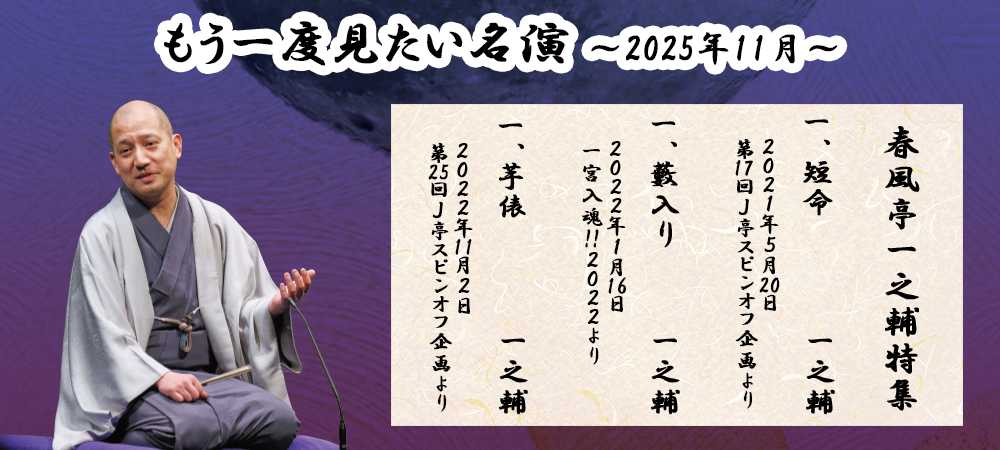 もう一度見たい名演 〜2025年11月〜
春風亭一之輔特集
一、短命 一之輔
2021年5月20日
第17回J亭スピンオフ企画より
一、藪入り 一之輔
2022年1月16日
一宮入魂!!2022より
一、芋俵 一之輔
2022年11月2日
第25回J亭スピンオフ企画より